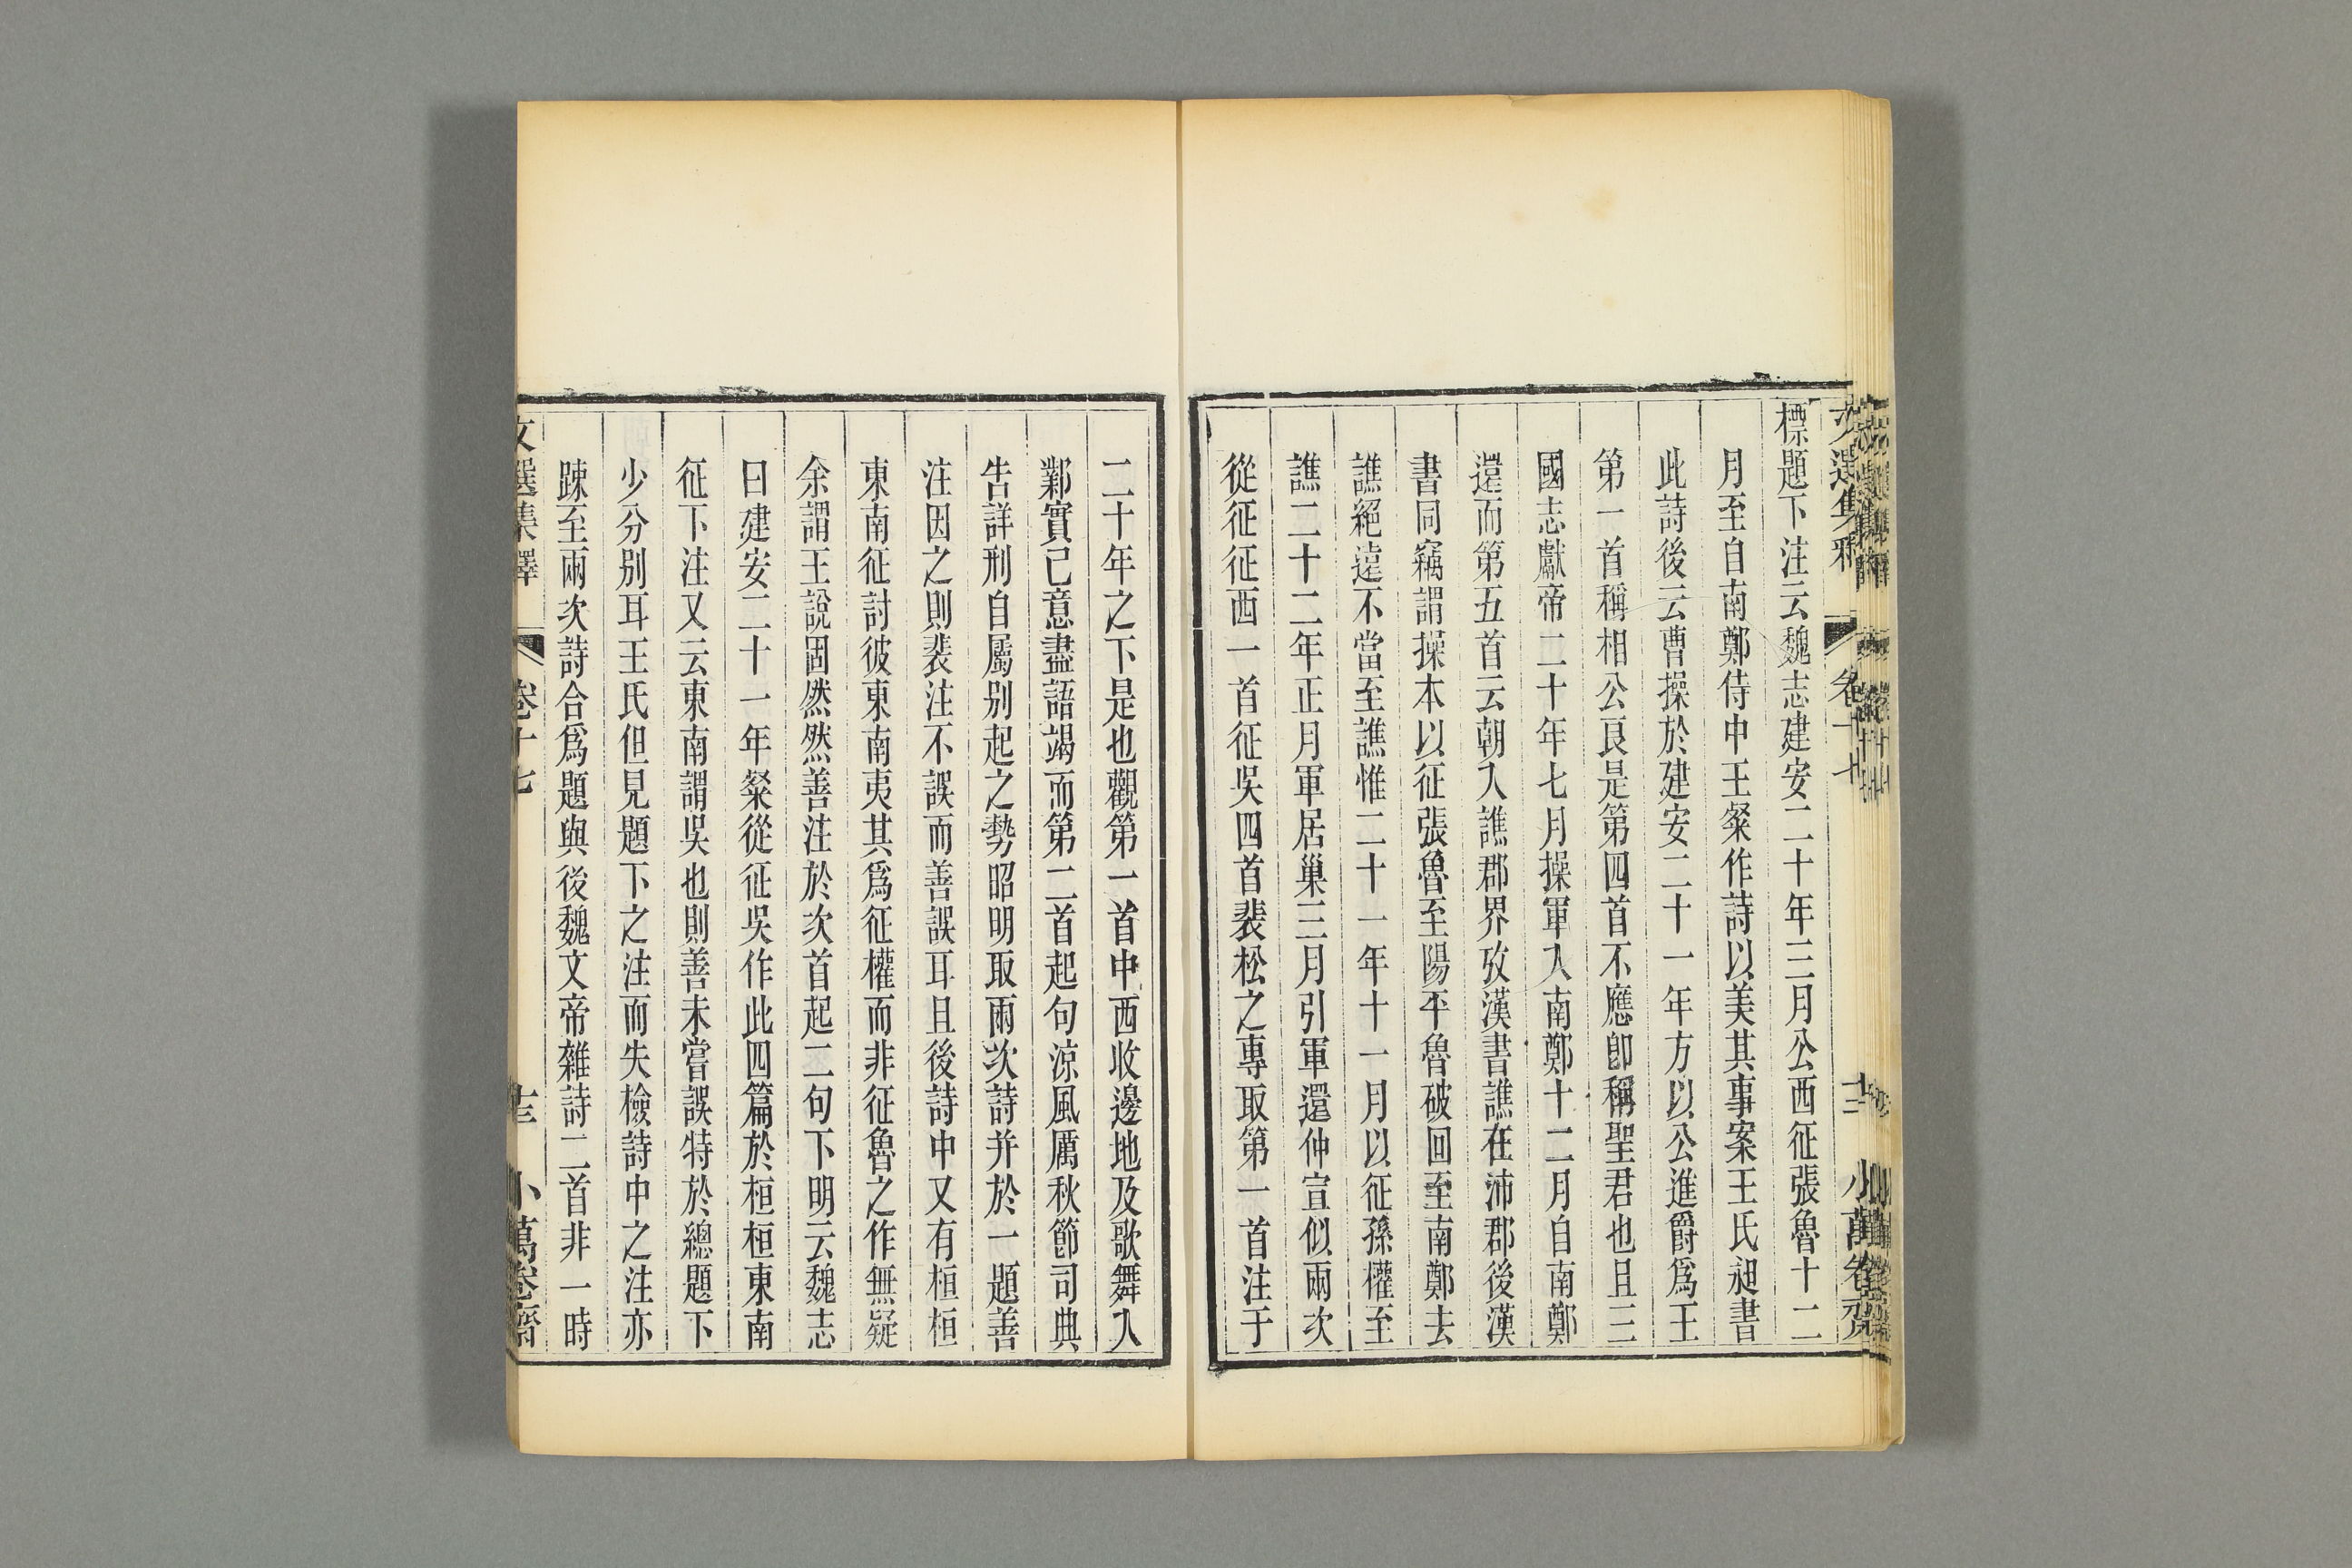 標題下注云魏志建安二十年三月公西征張魯十二
月至自南鄭侍中王粲作詩以美其事案王氏昶書
此詩後云曹操於建安二十一年方以公進爵爲王
第一首稱相公良是第四首不應卽稱聖君也且三
國志獻帝二十年七月操軍入南鄭十二月自南鄭
還而第五首云朝入譙郡界攷漢書譙在沛郡後漢
書同竊謂操本以征張魯至陽平魯破回至南鄭去
譙絕遠不當至譙惟二十一年十一月以征孫權至
譙二十二年正月軍居巢三月引軍還仲宣似兩次
從征征西一首征吳四首裴松之專取第一首注于
二十年之下是也觀第一首中西收邊地及歌舞入
鄴實已意盡語竭而第二首起句涼風厲秋節司典
告詳刑自屬别起之勢昭明取兩次詩并於一題善
注因之則裴注不誤而善誤耳且後詩中又有桓桓
東南征討彼東南夷其爲征權而非征魯之作無疑
余謂王說固然然善注於次首起二句下明云魏志
曰建安二十一年粲從征吳作此四篇於桓桓東南
征下注又云東南謂吳也則善未嘗誤特於總題下
少分别耳王氏但見題下之注而失檢詩中之注亦
踈至兩次詩合爲題與後魏文帝雜詩二首非一時
文選集釋 卷十七 十三 小萬卷齋